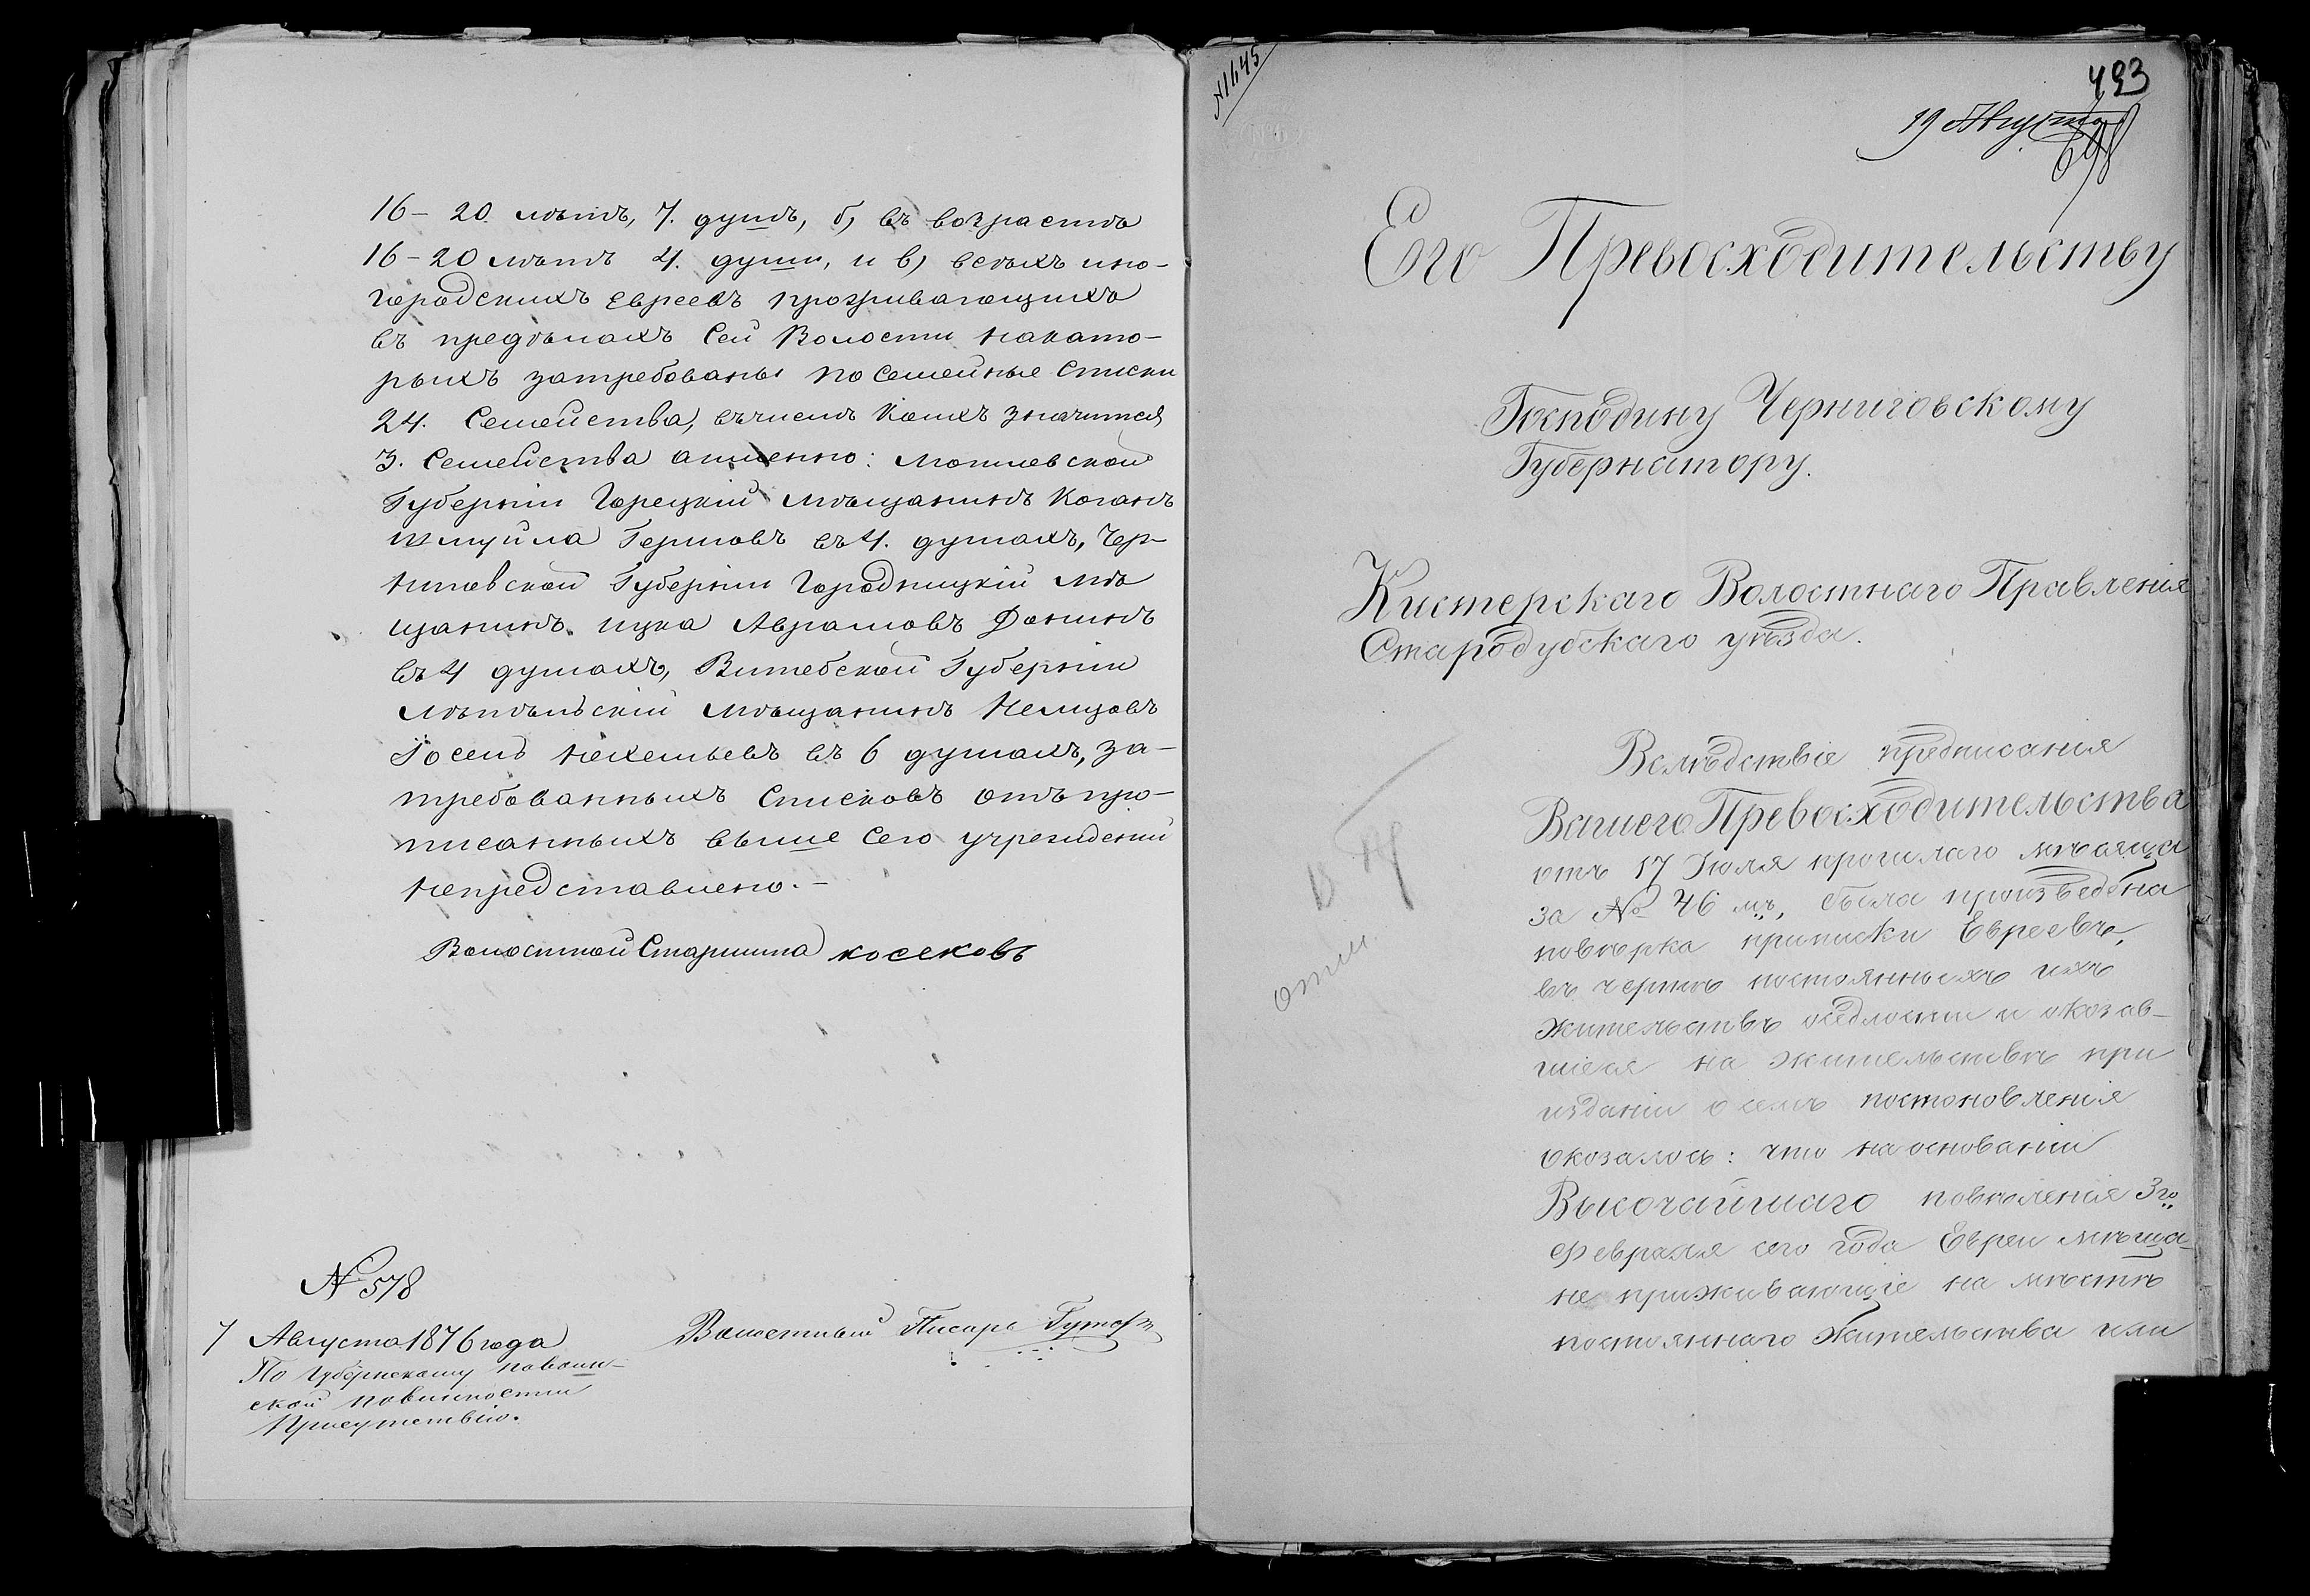 16 – 20. лѣтъ, 7. душъ, б) въ возрастѣ
16 – 20 лѣтъ 4. души, и в) всѣхъ ино-
городскихъ Евреевъ проживающихъ
въ предѣлахъ сей Волости накато-
рыхъ затребованы посемейные списки
24. семейства, въчислѣ коихъ значится
3. семейства аименно: Могилевской
Губерніи Горецкій мѣщанинъ Коганъ
Шмуйла Гершовъ въ 4. душахъ, Чер-
ниговской Губерніи Городницкій мѣ
щанинъ ицка Аврамовъ Донинъ
въ 4 душахъ, Витебской Губерніи
мѣщанинъ Немцовъ
Іосель въ 6 душахъ, за-
требованныхъ списковъ отъ про-
писанныхъ выше сего учрежденій
непредставлено. –
Волостной Старшина Косековъ
№ 578
7 Августа 1876 года
Волостный Писарь
По Губернскому повоин-
ской повинности
Присутствію.
№ 1645
493
19 Августа
698
Его Превосходительству
Господину Черниговскому
Губернатору.
Кистерскаго Волостнаго Правленія
Стародубскаго уѣзда.
Вслѣдствіе предписания
Вашего Превосходительства
отъ 17 Іюля прошлаго мѣсяца
за № 46 мъ, была произведена
повѣрка приписки Евреевъ,
въ чертѣ постоянныхъ ихъ
жительствъ оседлости и оказав-
шіеся на жительствѣ при
изданіи о семъ постановленія
оказалось: что на основаніи
Высочайшаго повѣленія 3го
Февраля сего года Евреи мѣща-
не приживающіе на мѣстѣ
постояннаго жительства или